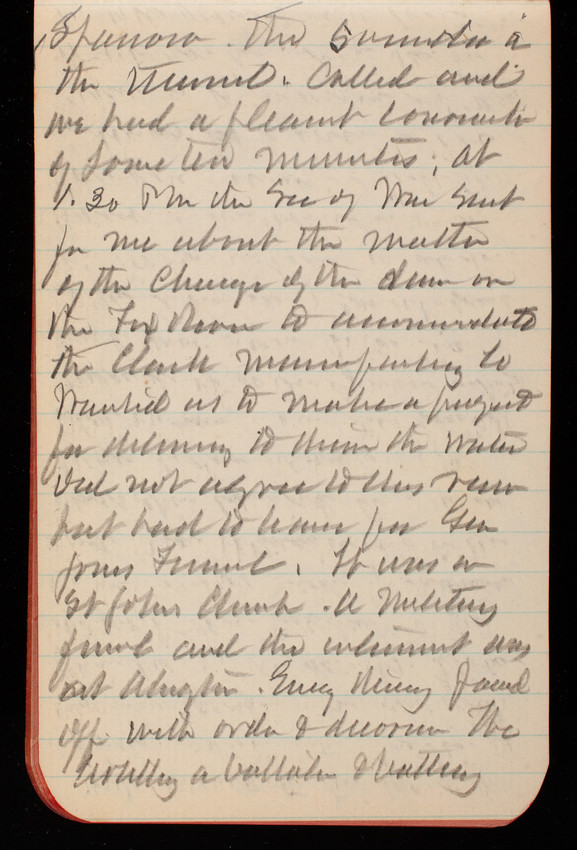 Sparrow. The
the Called and
we had a pleasant
of some ten minutes, at
1.30 PM the Sec of War sent
for me about the matter
of the change of the dam on
the Fox River to accommodate
the Clark Manufacturing Co
Wanted us to make a project
for delivering to them the water
Did not agree to this view
but had to leave for Gen
funeral. It was in
St Johns Church. A military
funeral and the interment was
at Arlington. Every thing passed
off with order & decorum The
a battalion & battery